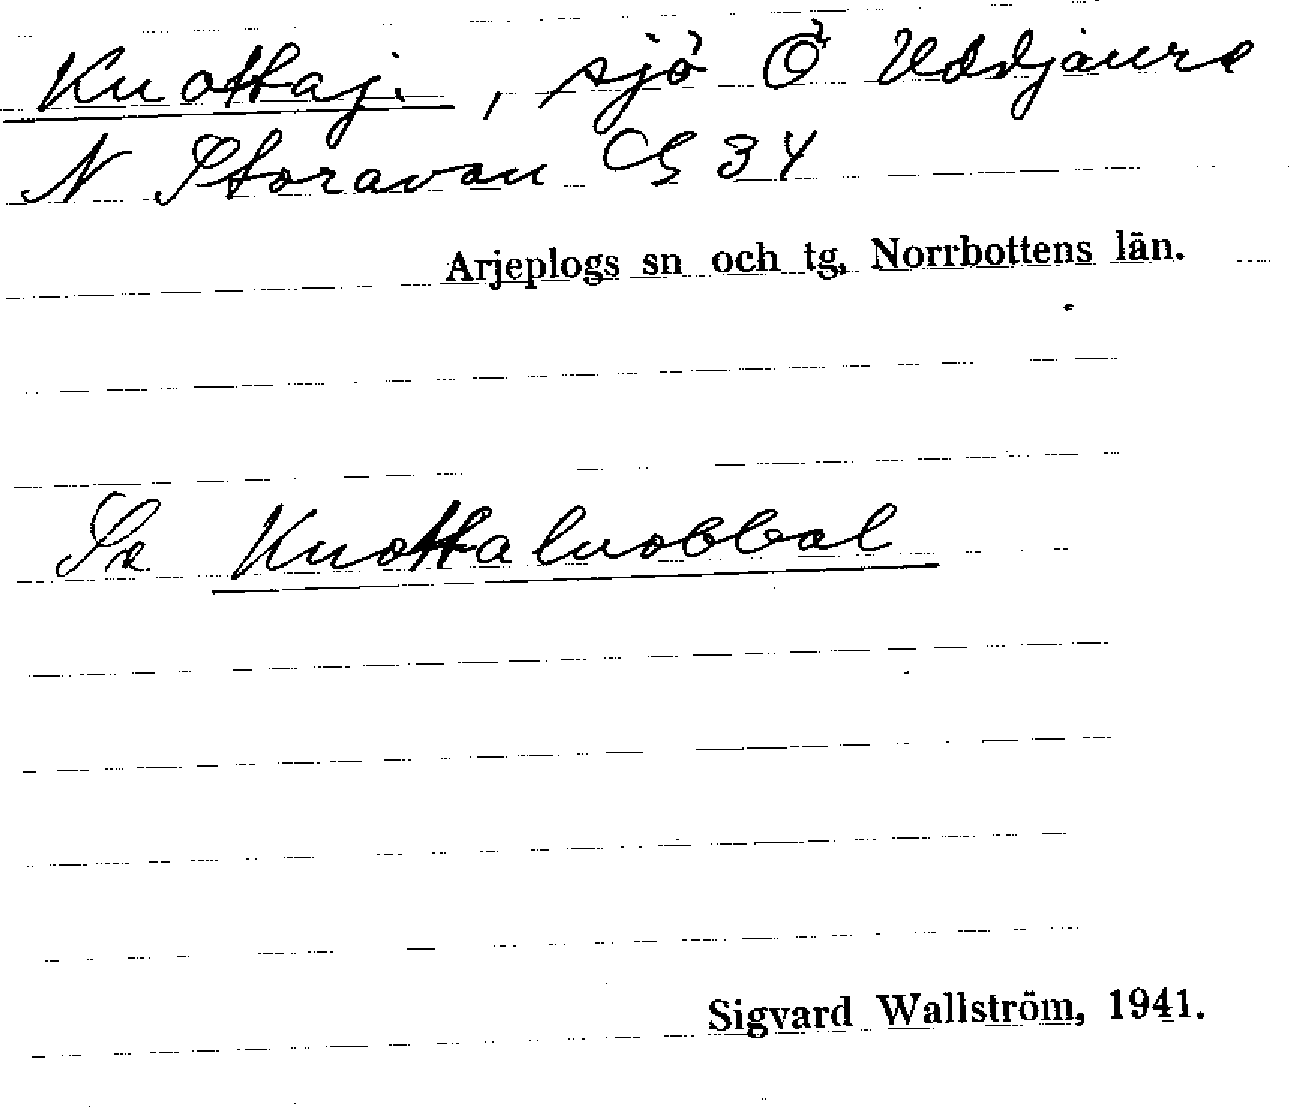 Kuottaj., sjö Ö Uddjaure
N Storavan GS 34
Arjeplogs sn och tg, Norrbottens län.
Kuottaluobbal
Sigvard Wallström, 1941.